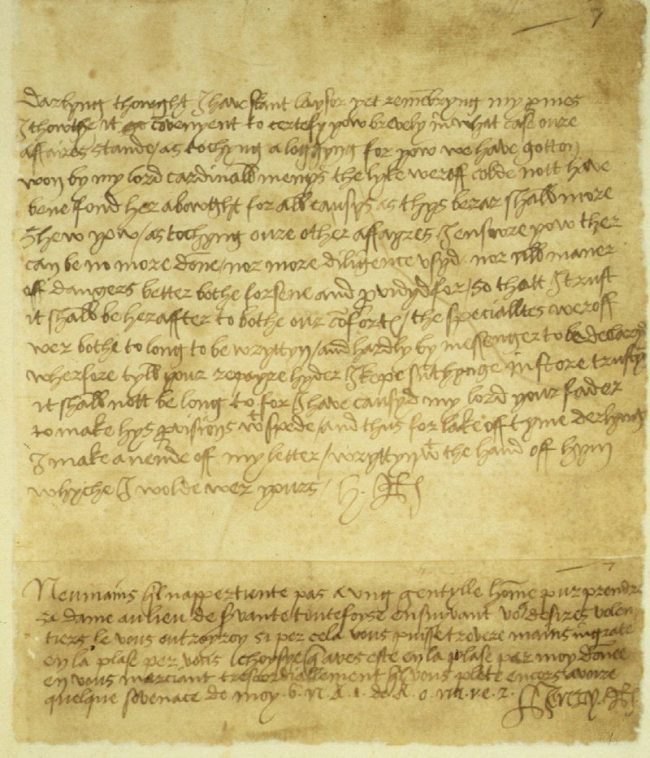 7
Darlyng thowght I have skant laysor yet remēbryng my ꝓmes
I thowthe it cōvenyent to certefy yow brevely in what case oure
affaires stande / as tochyng a loggyng for yow we have gotton
won by my lord cardinall menys the lyke weroff colde nott have
bene fond her abowght for all causys as thys berar shall more
shew yow / as tochyng oure other affayres I ensure yow ther
can be no more done / nor more diligence usyd nor all maner
off dangers better bothe forsene and ꝓvidyd for / so thatt I trust
it shall be heraffter to bothe our cōforte / the specialltes weroff
wer bothe to long to be wryttyn / and hardly by messenger to be declaryd
wherfore tyll your repayre hyder I kepe sūthynge in store trustyng
it shall nott be long to for I have causyd my lord your fader
to make hys ꝓvisions wᵗ spede / and thus for lake off tyme derlyng
I make anende off my letter / wryttyn wᵗ the hand off hym
whyche I wolde wer yours / H. R
7
Neūmains qⁱl nappertiente pas a ung gentylle home pur prendre
sa dame au lieu de servante toutefoyse ensuivant vos desires volen
tiers le vous outroyroy si per cela vous puisse trevere mains ingrate
en la plase per vous choysye q̄ aves este en la plase per moy donee
en vous merciant trescordiallement qⁱl vous plete encors avoire
quelque sovenace de moy . 6. N. A. 1. de A. o. na. ve. z.